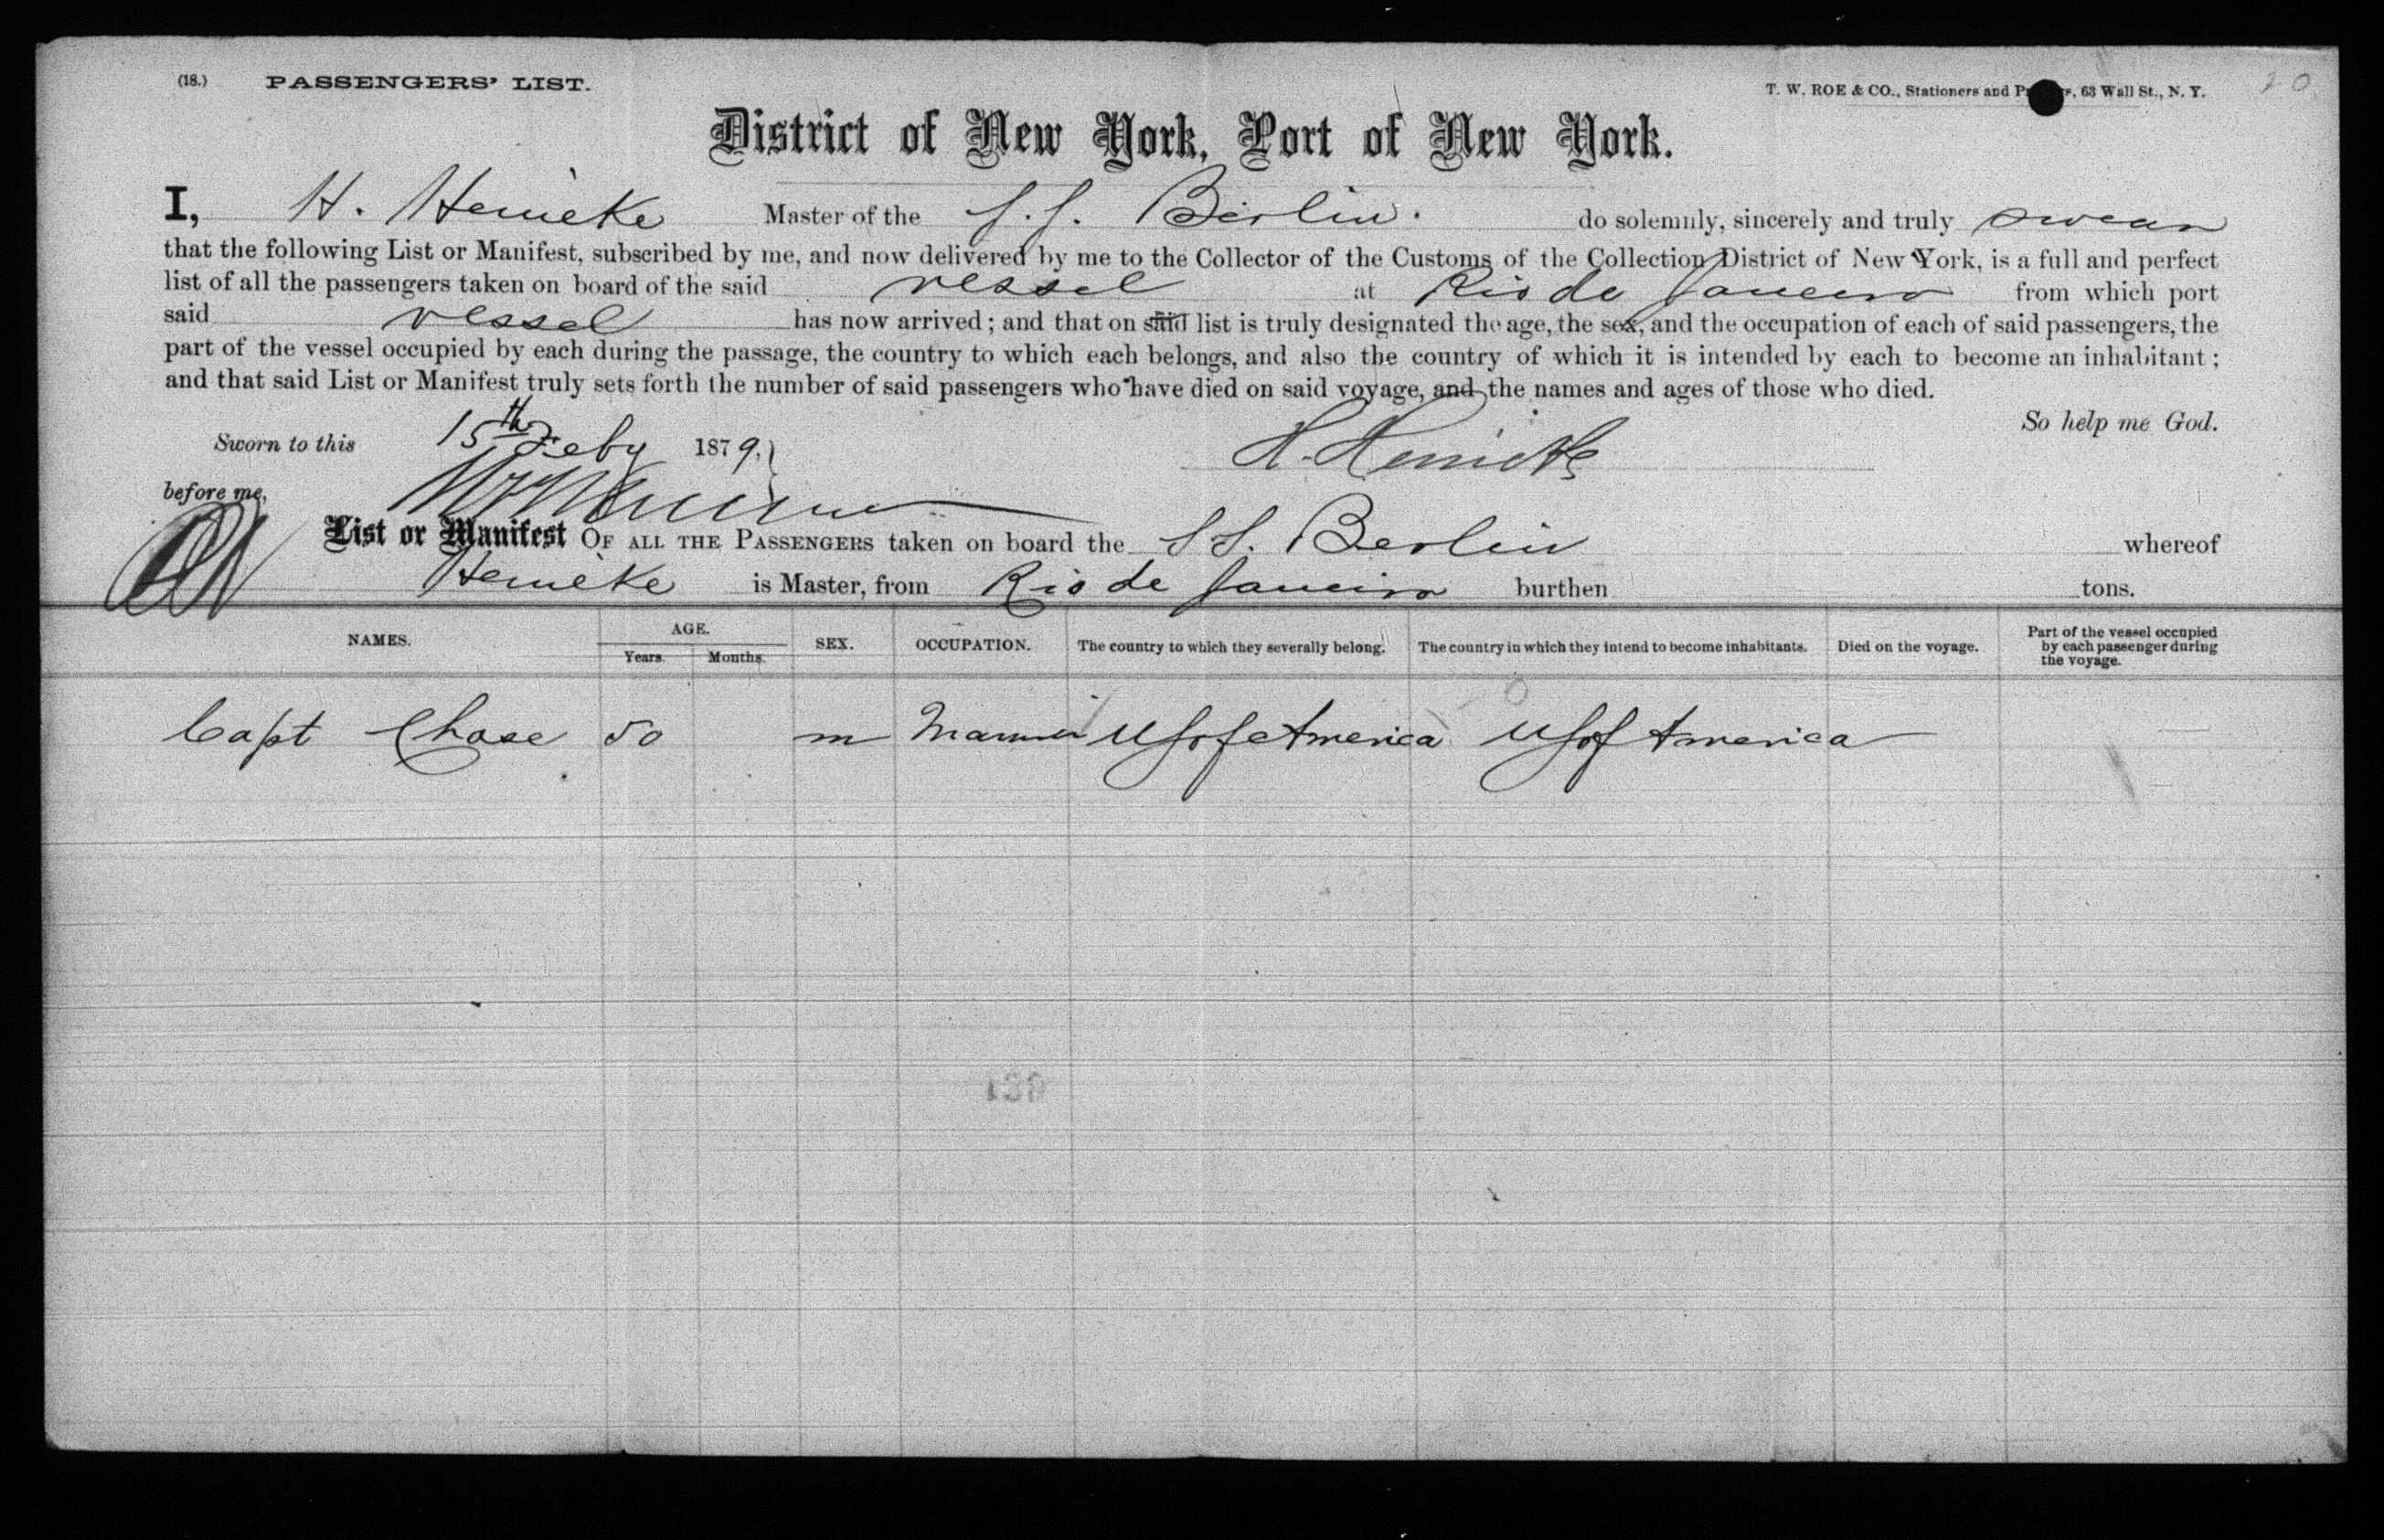 (18.) PASSENGERS' LIST. T. W. ROE & CO., Stationers and , 63 Wall St., N. Y. 20
District of New York, Port of New York.
I, H. Heineke Master of the S.S. Berlin. do solemnly, sincerely and truly swear
that the following List or Manifest, subscribed by me, and now delivered by me to the Collector of the Customs of the Collection District of New York, is a full and perfect
list of all the passengers taken on board of the said vessel at Rio de Janeiro from which port
said vessel has now arrived; and that on said list is truly designated the age, the sex, and the occupation of each of said passengers, the
part of the vessel occupied by each during the passage, the country to which each belongs, and also the country of which it is intended by each to become an inhabitant;
and that said List or Manifest truly sets forth the number of said passengers who have died on said voyage, and the names and ages of those who died.
So help me God.
Sworn to this 15th Feby 1879. H. Heineke
before me,
List or Manifest OF ALL THE PASSENGERS taken on board the SS. Berlin whereof
Heineke is Master, from Rio de Janeiro burthen tons.
NAMES. AGE. Years. Months. SEX. OCCUPATION. The country to which they severally belong. The country in which they intend to become inhabitants. Died on the voyage. Part of the vessel occupied by each passenger during the voyage.
Capt Chase 50 m Mariner US of America US of America